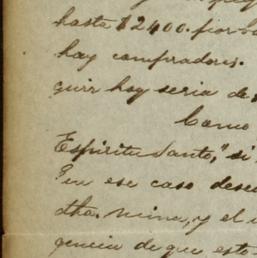 hasta $2400. por
hay compradores.
quir hoy seria de
Como
Espiritu Santo," si
En ese caso dese
dha. mina, y el
gencia de que esto